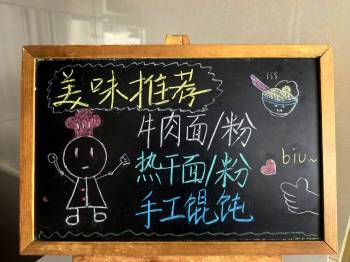 美味推荐
牛肉面/粉
热干面/粉
biu~
手工馄饨